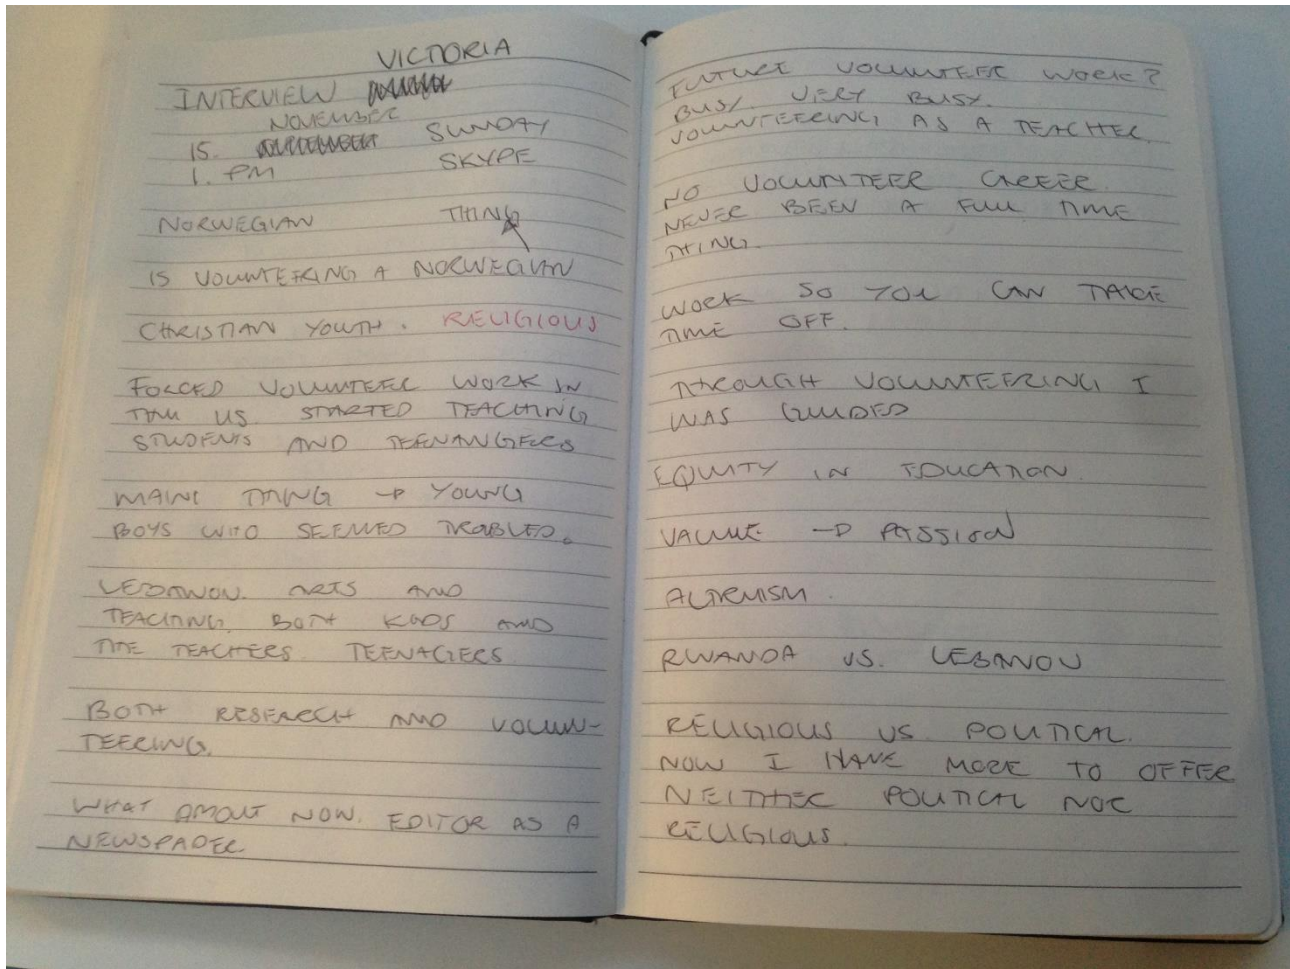 VICTORIA
INTERVIEW
NOVEMBER
15. SUNDAY
1. PM SKYPE
NORWEGIAN THING
IS VOLUNTEERING A NORWEGIAN
CHRISTIAN YOUTH. RELIGIOUS
FORCED VOLUNTEER WORK IN
THE US. STARTED TEACHING
STUDENTS AND TEENANGERS
MAIN THING → YOUNG
BOYS WHO SEEMED TROUBLED.
LEBANON. ARTS AND
TEACHING. BOTH KIDS AND
THE TEACHERS. TEENAGERS
BOTH RESEARCH AND VOLUN-
TEERING.
WHAT ABOUT NOW. EDITOR AS A
NEWSPAPER
FUTURE VOLUNTEER WORK?
BUSY. VERY BUSY.
VOLUNTEERING AS A TEACHER.
NO VOLUNTEER CAREER.
NEVER BEEN A FULL TIME
THING.
WORK SO YOU CAN TAKE
TIME OFF.
THROUGH VOLUNTEERING I
WAS GUIDED
EQUITY IN EDUCATION.
VALUE → PASSION
ALTRUISM.
RWANDA VS. LEBANON
RELIGIOUS VS. POLITICAL.
NOW I HAVE MORE TO OFFER
NEITHER POLITICAL NOR
RELIGIOUS.